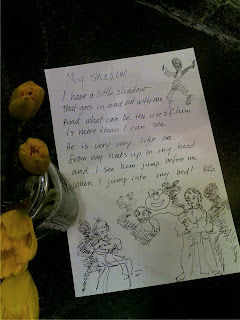 My Shadow
I have a little shadow
that goes in and out with me
And what can be the use of him
is more than I can see.
He is very very like me
from my heels up to my head
and I see him jump before me
when I jump into my bed!